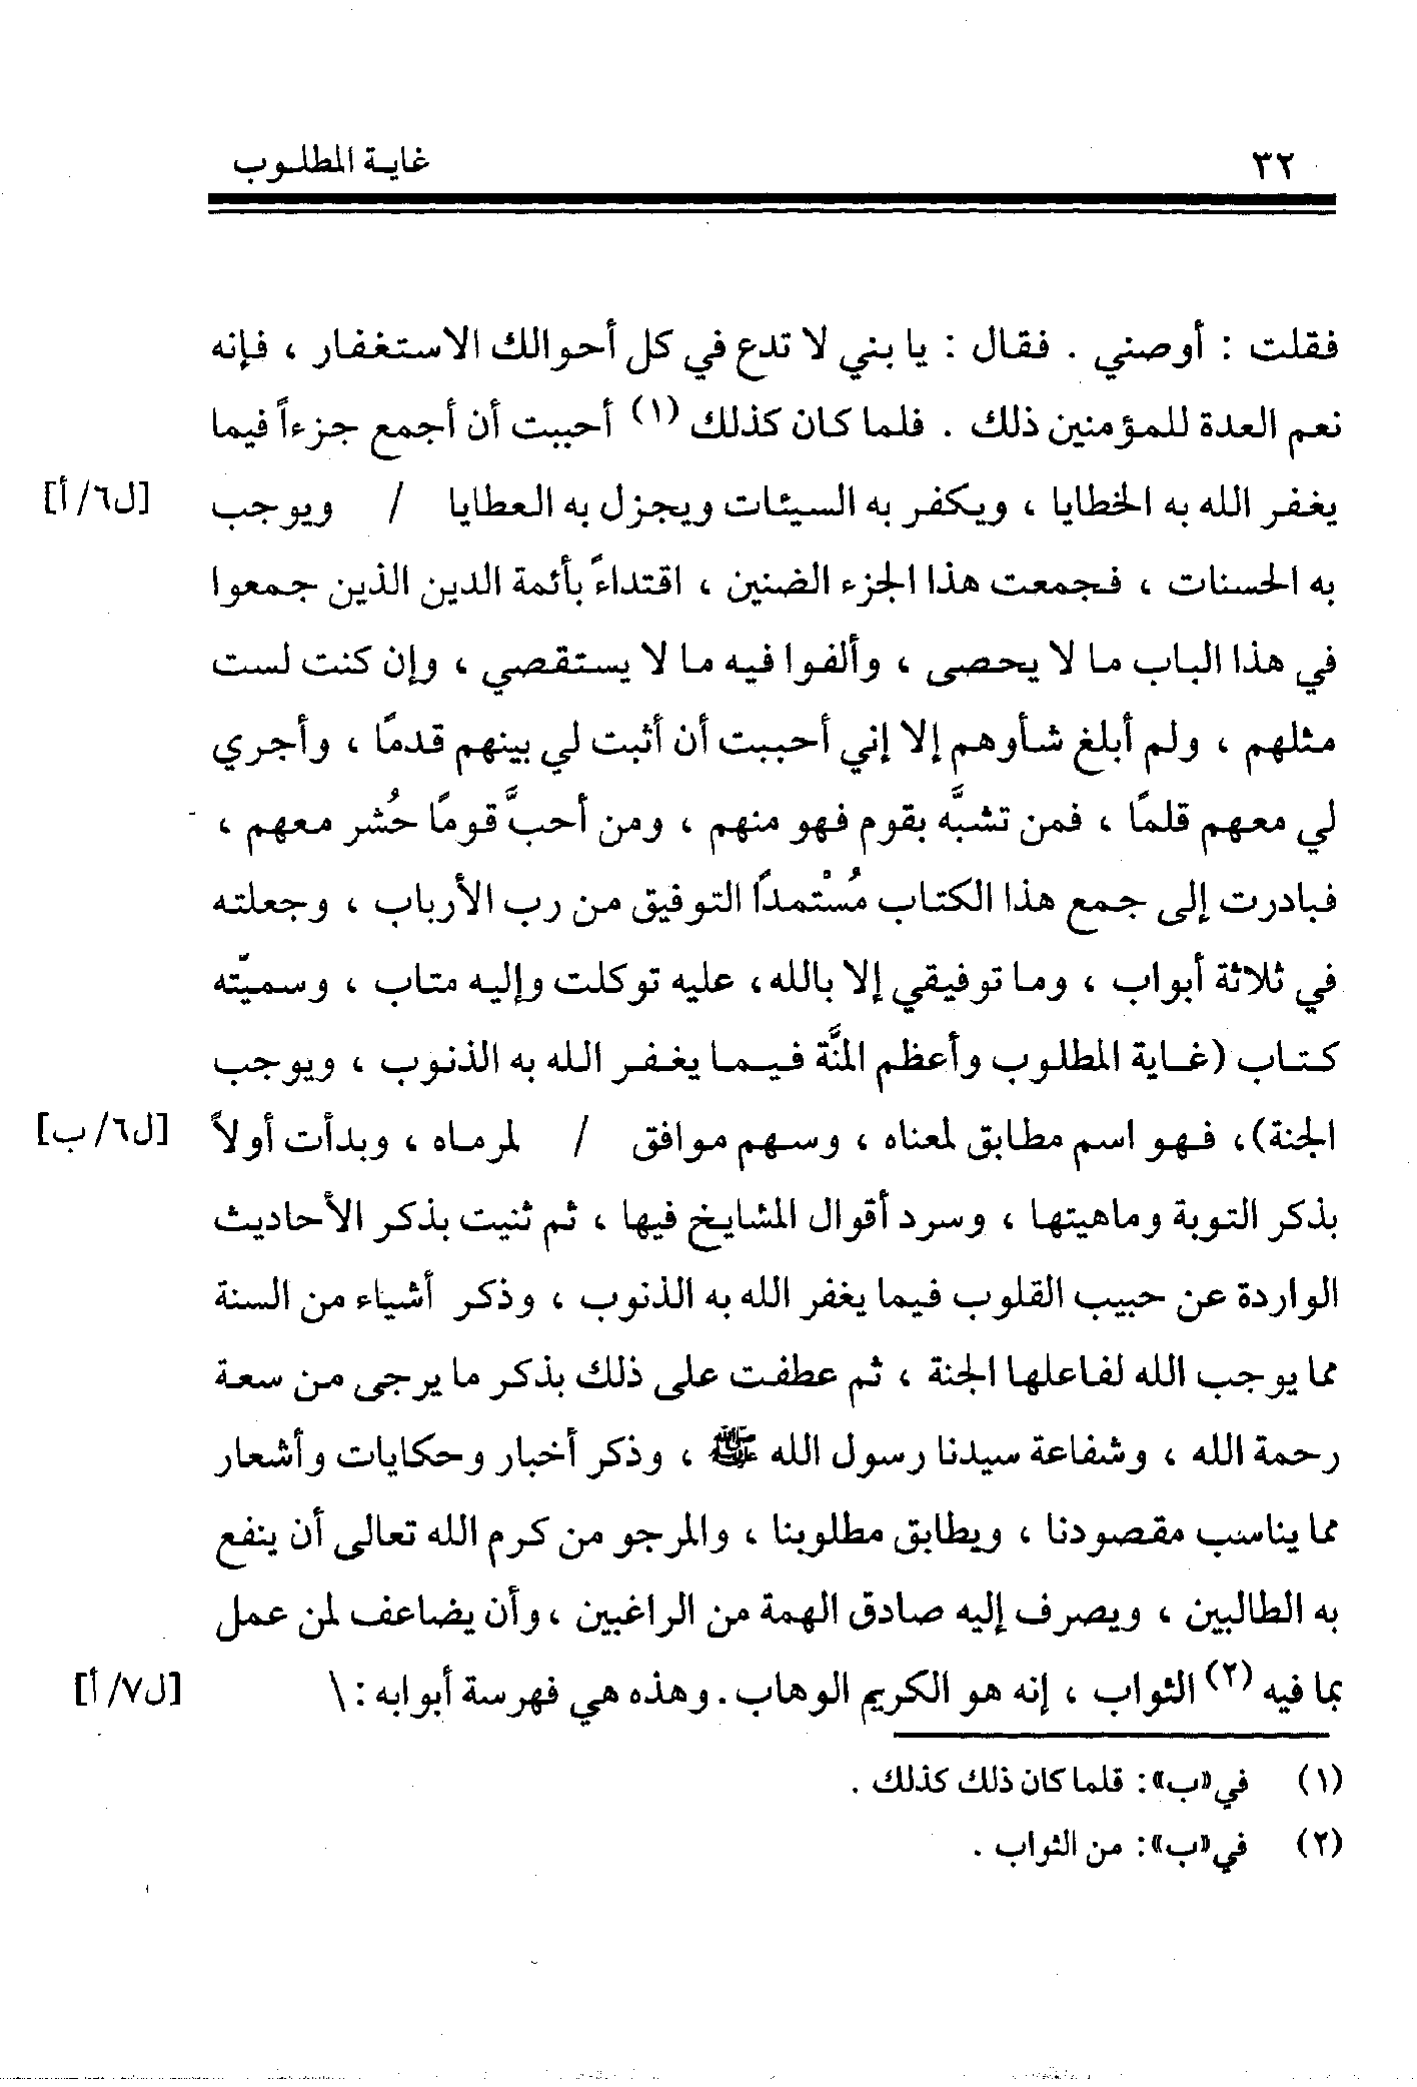 ٣٢ غاية المطلوب
فقلت : أوصني . فقال : يا بني لا تدع في كل أحوالك الاستغفار ، فإنه
نعم العدة للمؤمنين ذلك . فلما كان كذلك (١) أحببت أن أجمع جزءاً فيما
يغفر الله به الخطايا ، ويكفر به السيئات ويجزل به العطايا / ويوجب [ل٦/أ]
به الحسنات ، فجمعت هذا الجزء الضنين ، اقتداءً بأئمة الدين الذين جمعوا
في هذا الباب ما لا يحصى ، وألفوا فيه ما لا يستقصي ، وإن كنت لست
مثلهم ، ولم أبلغ شأوهم إلا إني أحببت أن أثبت لي بينهم قدمًا ، وأجري
لي معهم قلمًا ، فمن تشبَّه بقوم فهو منهم ، ومن أحبَّ قومًا حُشر معهم ،
فبادرت إلى جمع هذا الكتاب مُسْتمدًا التوفيق من رب الأرباب ، وجعلته
في ثلاثة أبواب ، وما توفيقي إلا بالله، عليه توكلت وإليه متاب ، وسميّته
كتاب (غاية المطلوب وأعظم المنَّة فيما يغفر الله به الذنوب ، ويوجب
الجنة)، فهو اسم مطابق لمعناه ، وسهم موافق / لمرماه ، وبدأت أولاً [ل٦/ب]
بذكر التوبة وماهيتها ، وسرد أقوال المشايخ فيها ، ثم ثنيت بذكر الأحاديث
الواردة عن حبيب القلوب فيما يغفر الله به الذنوب ، وذكر أشياء من السنة
مما يوجب الله لفاعلها الجنة ، ثم عطفت على ذلك بذكر ما يرجى من سعة
رحمة الله ، وشفاعة سيدنا رسول الله ﷺ ، وذكر أخبار وحكايات وأشعار
مما يناسب مقصودنا ، ويطابق مطلوبنا ، والمرجو من كرم الله تعالى أن ينفع
به الطالبين ، ويصرف إليه صادق الهمة من الراغبين ،وأن يضاعف لمن عمل
بما فيه (٢) الثواب ، إنه هو الكريم الوهاب. وهذه هي فهرسة أبوابه : \ [ل٧/أ]
(١) في «ب»: قلما كان ذلك كذلك .
(٢) في «ب»: من الثواب .